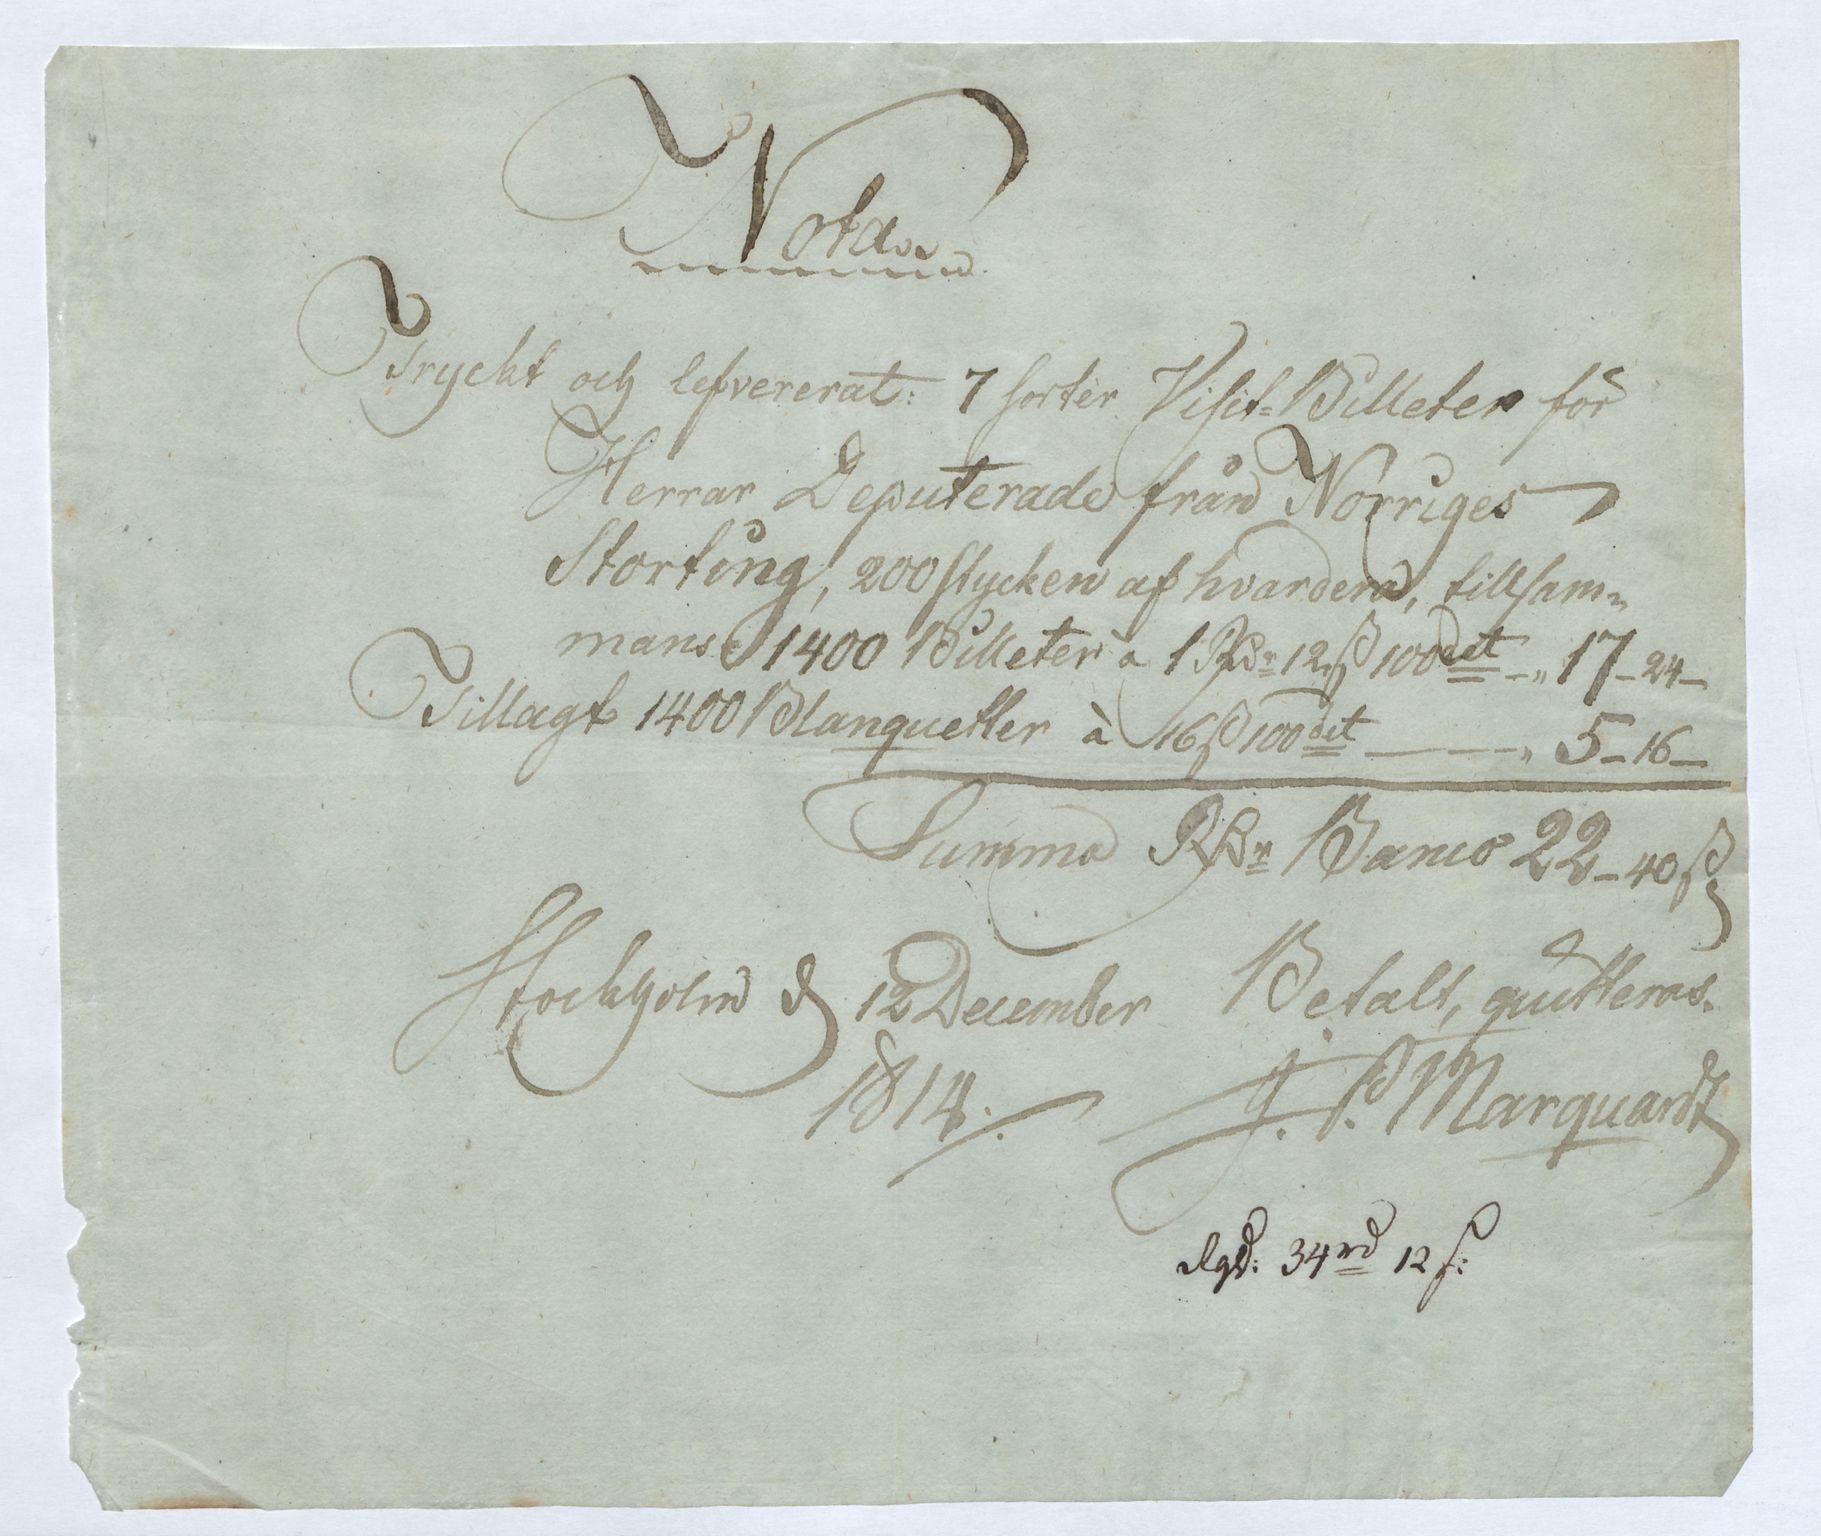 Nota.
Tryckt och lefvererat: 7 sorter Visit-Billeter för
Herrar Deputerade från Norriges
Storting, 200 stycken af hvardera, tillsam=
mans 1400 Billeter à 1 Rdr 12 ß 100det -„ 17-24-
Tillagt 1400 Blanquetter à 16 ß 100det — „ 5-16-
Summa Rdr Banco 22-40 ß
Stockholm d 12 December Betalt, qvitteras.
1814. J. P. Marquardt
Rgd: 34 rd 12 ß: